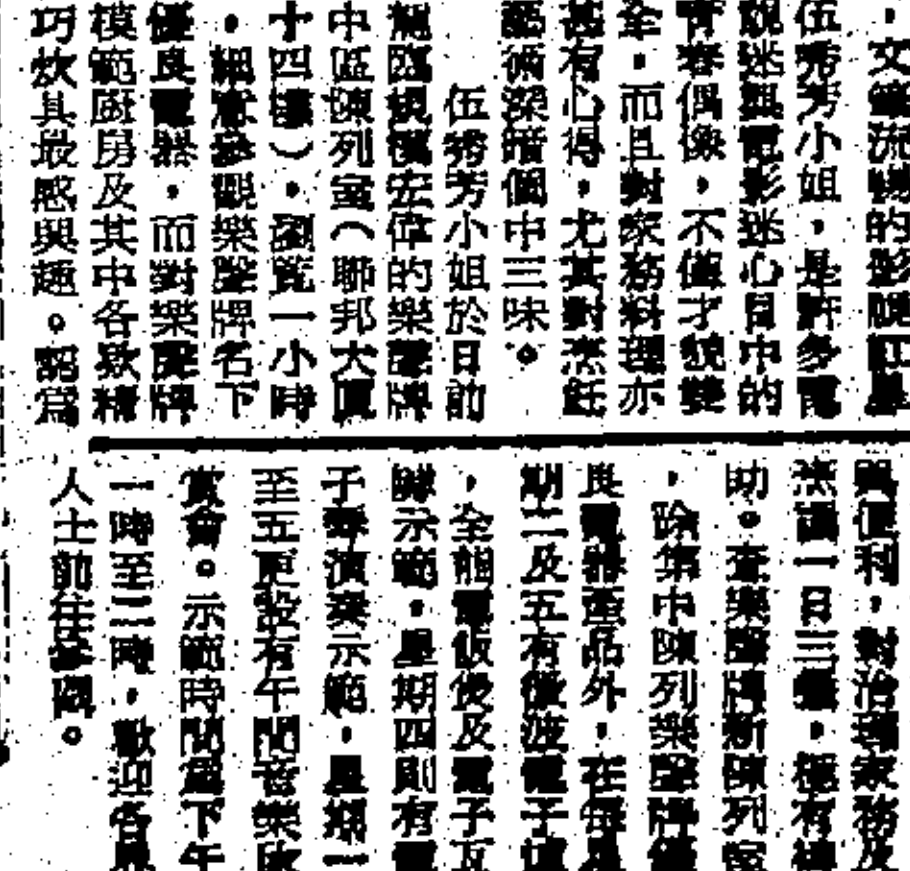 ，文鋒流暢的影視紅星
伍秀芳小姐，是許多電
視迷與電影迷心目中的
青春偶像，不僅才貌雙
全，而且對家務料理亦
甚有心得，尤其對烹飪
藝術深諳個中三味。
伍秀芳小姐於日前
親臨規模宏偉的樂聲牌
中區陳列室（聯邦大廈
十四樓），瀏覽一小時
，細意參觀樂聲牌名下
優良電器，而對樂聲牌
模範廚房及其中各款精
巧炊具最感興趣。認爲
便利，對治理家務及
烹調一日三餐，極有
助。查樂聲牌新陳列室
，除集中陳列樂聲牌優
良電器產品外，在每星
期二及五有微波電子爐
，全能電飯煲及電子瓦
示範，星期四則有電
子琴演奏示範，星期一
至五更設有午間音樂欣
賞會。示範時間爲下午
一時至二時，歡迎各界
人士前往參觀。